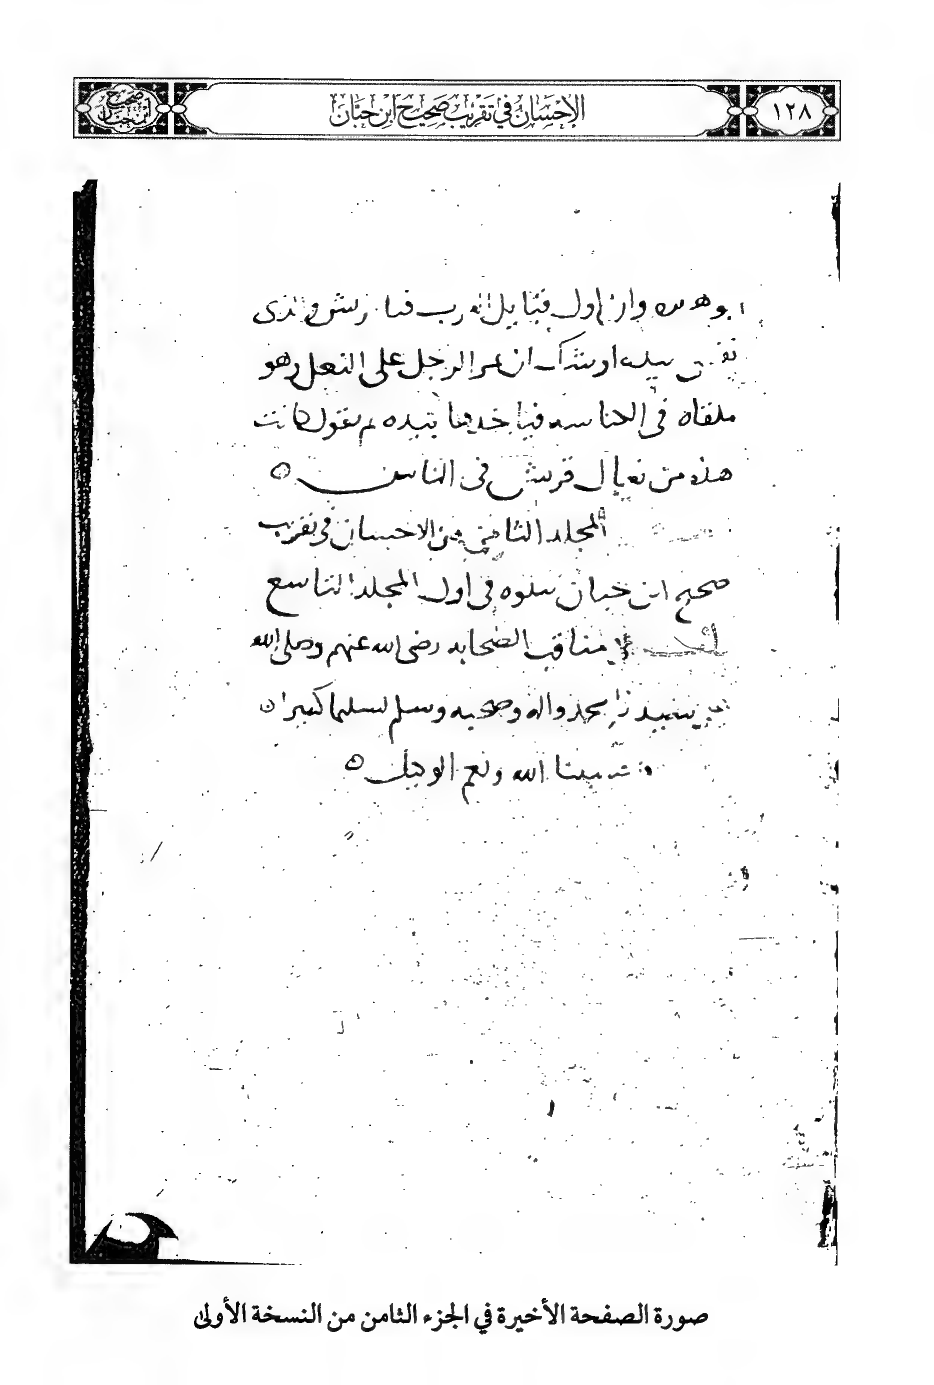 صحيح ابن حبان
الإحسان في تقريب صحيح ابن حبان
١٢٨
ابو هريره وان اول قبايل العرب فنا قريش والذي
نفسي بيده اوشك ان يمر الرجل على النعل وهو
ملقاه في الكناسه فياخذها بيده ثم يقول كانت
هذه من نعال قريش في الناس ٥
المجلد الثامن من الاحسان في تقريب
صحيح ابن حبان يتلوه في اول المجلد التاسع
مناقب الصحابه رضي الله عنهم وصلى الله
سيدنا محمد واله وصحبه وسلم تسليما كثيرا ٥
حسبنا الله ونعم الوكيل ٥
صورة الصفحة الأخيرة في الجزء الثامن من النسخة الأولى